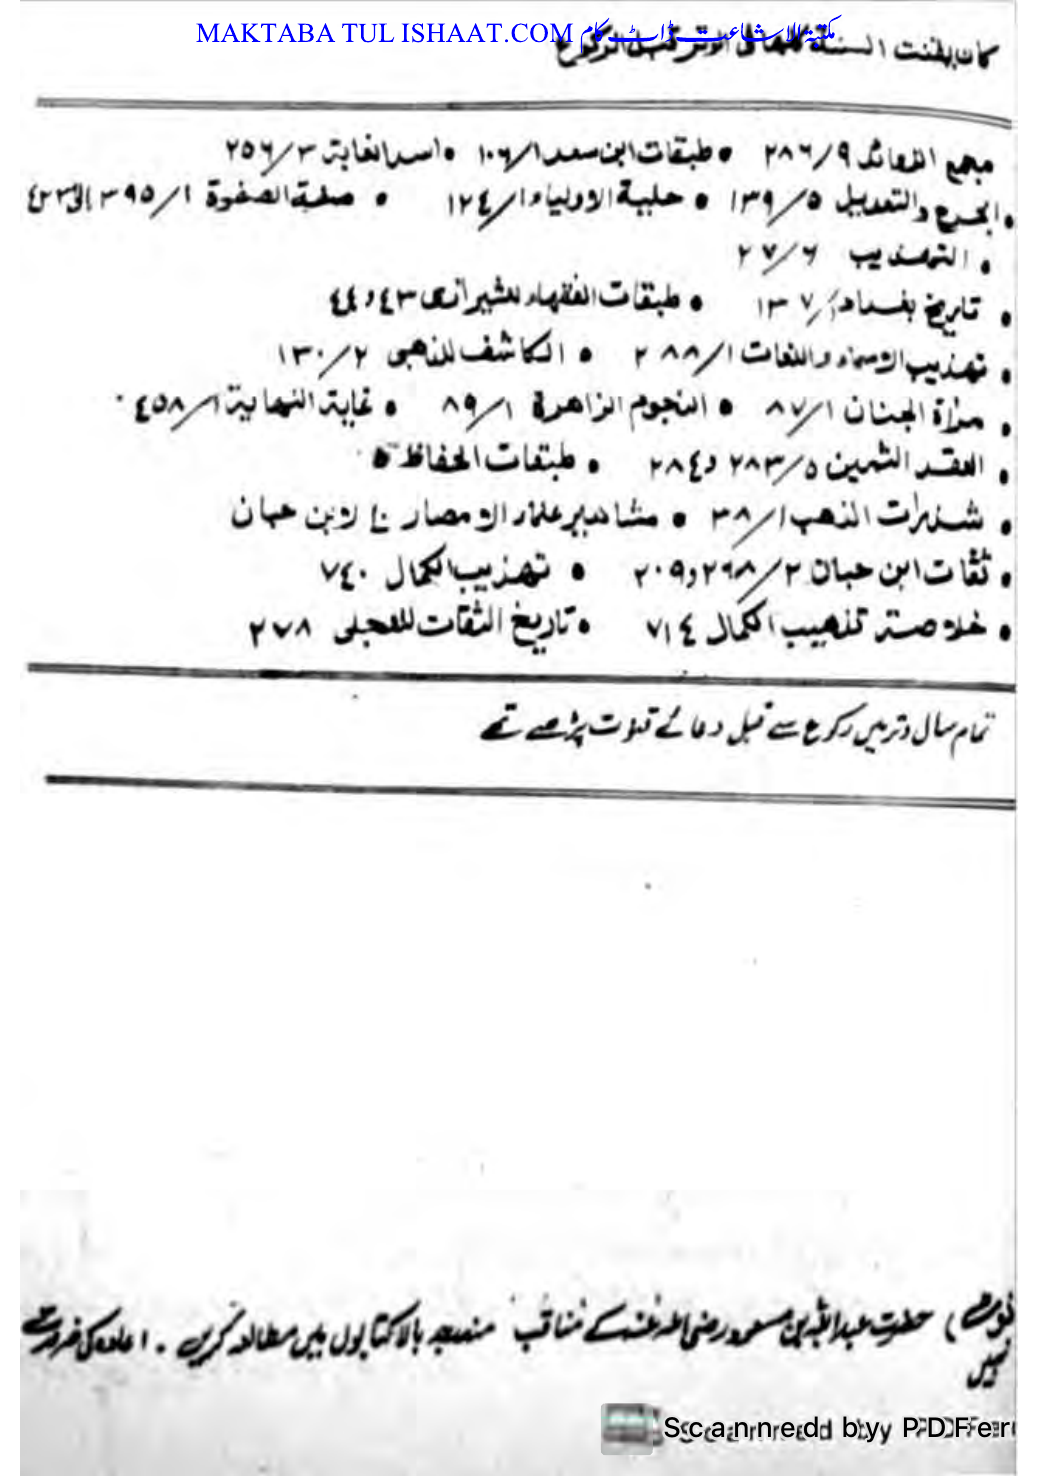 MAKTABA TUL ISHAAT.COM مکتبۃ الاشاعت ڈاٹ کام
كان يقنت السنة كلها فى الوتر قبل الركوع
مجمع الزوائد ٩/٢٨٦ • طبقات ابن سعد ١/١٠٦ • اسد الغابة ٣/٢٥٦
• الجرح والتعديل ٥/١٣٩ • حلية الاولياء ١/١٢٤ • صفة الصفوة ١/٣٩٥ الى ٤٢٣
• التهذيب ٦/٢٧
• تاريخ بغداد ١/١٣٧ • طبقات الفقهاء للشيرازى ٤٣ و ٤٤
• تهذيب الاسماء واللغات ١/٢٨٨ • الكاشف للذهبى ٢/١٣٠
• مرأة الجنان ١/٨٧ • النجوم الزاهرة ١/٨٩ • غاية النهاية ١/٤٥٨
• العقد الثمين ٥/٢٨٣ و ٢٨٤ • طبقات الحفاظ ٥
• شذرات الذهب ١/٣٨ • مشاهير علماء الامصار ١٠ لابن حبان
• ثقات ابن حبان ٢/٢٠٩،٢٩٨ • تهذيب الكمال ٧٤٠
• خلاصة تذهيب الكمال ٧١٤ • تاريخ الثقات للعجلى ٢٧٨
تمام سال وتر میں رکوع سے قبل دعائے قنوت پڑھتے تھے
نوٹ) حضرت عبداللہ بن مسعود رضی اللہ عنہ کے مناقب مندرجہ بالا کتابوں میں مطالعہ کریں۔ اعادہ کی ضرورت
نہیں
Scanned by PDFer